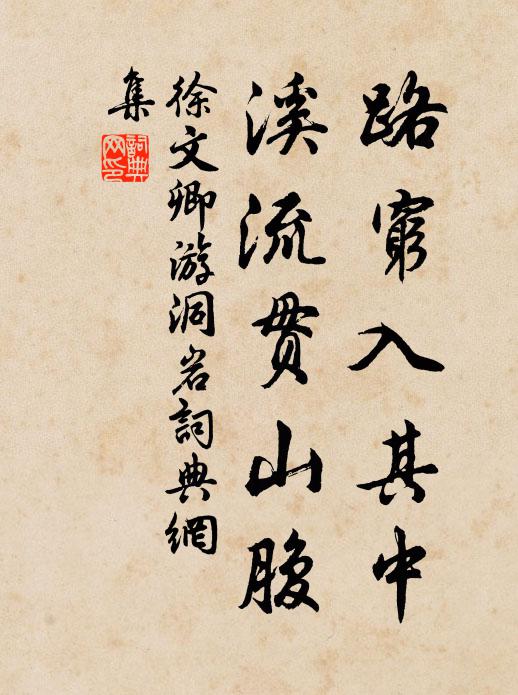 路窮入其中
溪流贯山腹
徐文卿游洞岩詞典網
集
詞典
网印